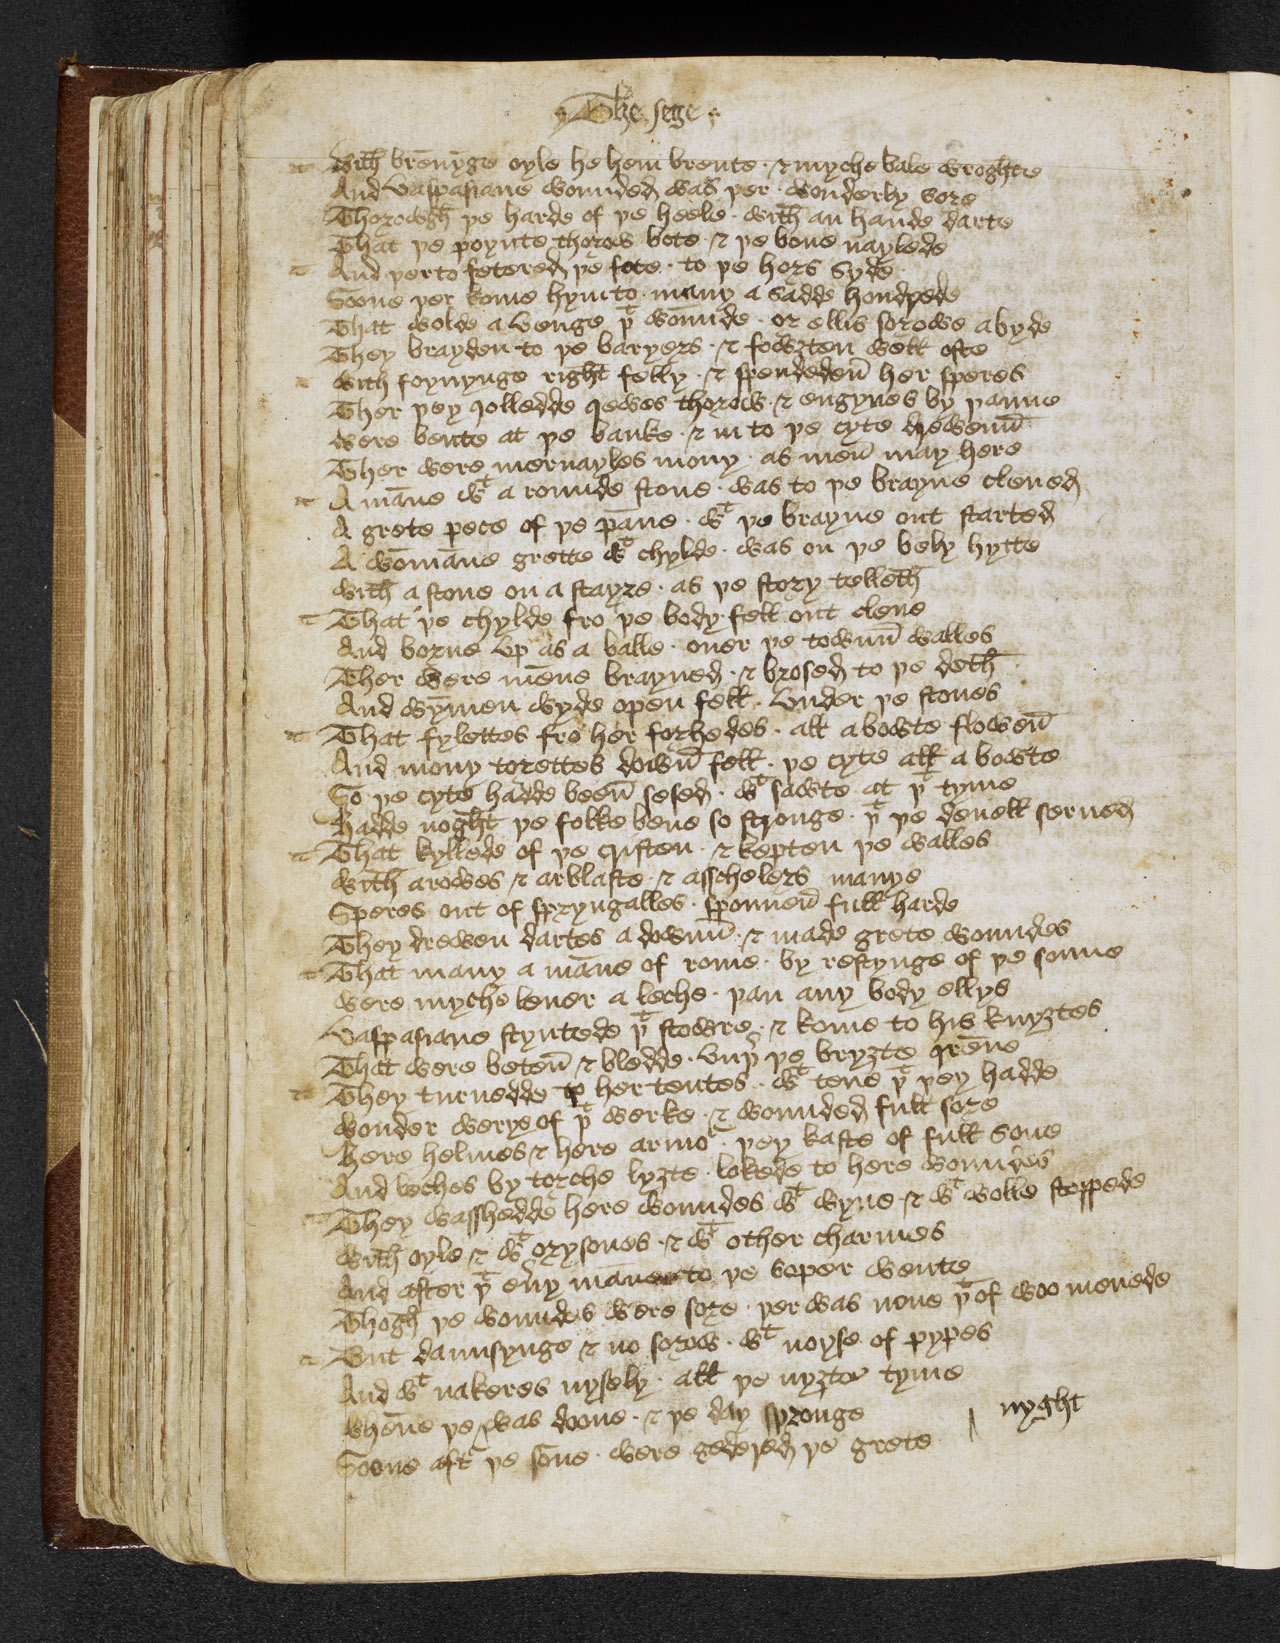 The sege
With brēnyge oyle he hem brente · ⁊ myche bale wroghtte
And Vaspasiane wounded was þer · wonderly sore
Thorowgh þe harde of þe heele · with an hande darte
That þe poynte thorow bote · ⁊ þe bone naylede
And þerto fetered þe fote · to þe hors syde
Soone þer kome hym to · many a sadde hondrede
That wolde a venge þᵗ wounde · or ellis sorowe abyde
They brayden to þe baryers · ⁊ fowȝten well ofte
With foynynge right felly · ⁊ spendeden her speres
Ther þey Jolledde Jewes thorow · ⁊ engynes by þanne
Were bente at þe banke · ⁊ in to þe cyte drewenn
Ther were mervayles mony · as men may here
A māne wᵗ a rounde stone · was to þe brayne cleued
A grete pece of þe pāne · wᵗ þe brayne out started
A womāne grette wᵗ chylde · was on þe bely hytte
With a stone on a stayre · as þe story telleth
That þe chylde fro þe body fell out clene
And borne vp as a balle · ouer þe townn walles
Ther were mēne brayned · ⁊ brosed to þe deth
And wymen wyde open fell · vnder þe stones
That fylettes fro her forhedes · all abowte flowen
And mony torettes down fell · þe cyte all a bowte
So þe cyte hadde been sesed · wᵗ sawte at þᵗ tyme
Hadde noght þe folke bene so stronge · þᵗ þe deuell serued
That kyllede of þe cristen · ⁊ kepten þe walles
With arowes ⁊ arblaste · ⁊ asschelers manye
Speres out of spryngalles · sponnen full harde
They drewen dartes a downn · ⁊ made grete woundes
That many a māne of rome · by restynge of þe sonne
Were myche leuer a leche · þan any body ellys
Vaspasiane styntede þᵗ stowre · ⁊ kome to his knyȝtes
That were beten ⁊ bledde · vnþ þe bryȝte Jrēne
They turnedde to her tentes · wᵗ tene þᵗ þey hadde
Wonder werye of þᵗ werke · ⁊ wounded full sore
Here helmes ⁊ here armoʳ · þey kaste of full sone
And leches by torche lyȝte · lokede to here woundes
They wasshedde here woundes wᵗ wyne ⁊ wᵗ wolle stoppede
With oyle ⁊ wᵗ orysones · ⁊ wᵗ other charmes
And after þᵗ euy māner to þe soper wente
Thogh þe woundes were sore · þer was none þᵗ of woo menede
But daunsynge ⁊ no sorow · wᵗ noyse of pypes
And wᵗ nakeres nysely · all þe nyȝte tyme
Whēne þe was doone · ⁊ þe day spronge
nyght
Soone aft þe sōne · were gedered þe grete